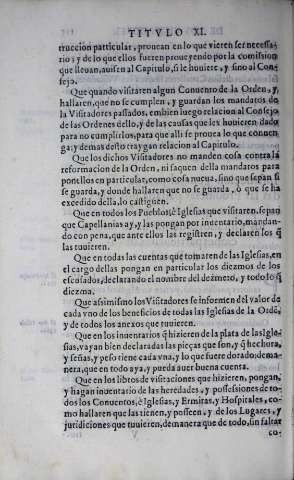 TITVLO XI.
truccion particular, prouean en lo que vieren ser necessa-
rio; y de lo que ellos fueren proueyendo por la comission
que lleuan, auisen al Capitulo, si le huuiere, y sino al Con-
sejo.
Que quando visitaren algun Conuento de la Orden, y
hallaren, que no se cumplen, y guardan los mandatos de
la Visitadores passados, embien luego relacion al Consejo
de las Ordenes dello, y de las causas que les huuieren dado
para no cumplirlos, para que alli se prouea lo que conuen-
ga; y demas desto traygan relacion al Capitulo.
Que los dichos Visitadores no manden cosa contra la
reformacion de la Orden, ni saquen della mandatos para
ponellos en particular, como cosa nueua, sino que sepan si
se guarda, y donde hallaren que no se guarda, o que se ha
excedido della, lo castiguen.
Que en todos los Pueblos, è Iglesias que visitaren, sepan
que Capellanias ay, y las pongan por inuentario, mandan-
do con pena, que ante ellos las registren, y declaren los q̃
las tuuieren.
Que en todas las cuentas que tomaren de las Iglesias, en
el cargo dellas pongan en particular los diezmos de los
escusados, declarando el nombre del dezmero, y todo lo q̃
diezma.
Que assimismo los Visitadores se informen del valor de
cada vno de los beneficios de todas las Iglesias de la Ordē,
y de todos los anexos que tuuieren.
Que en los inuentarios q̃ hizieren de la plata de las Igle-
sias, vayan bien declaradas las pieças que son, y q̃ hechura,
y señas, y peso tiene cada vna, y lo que fuere dorado; de ma-
nera, que en todo aya, y pueda auer buena cuenta.
Que en los libros de visitaciones que hizieren, pongan,
y hagan inuentario de las heredades, y possessiones de to-
dos los Conuentos, è Iglesias, y Ermitas, y Hospitales, co-
mo hallaren que las tienen, y posseen, y de los Lugares, y
juridiciones que tuuieren, de manera que de todo, sin faltar
V
co-